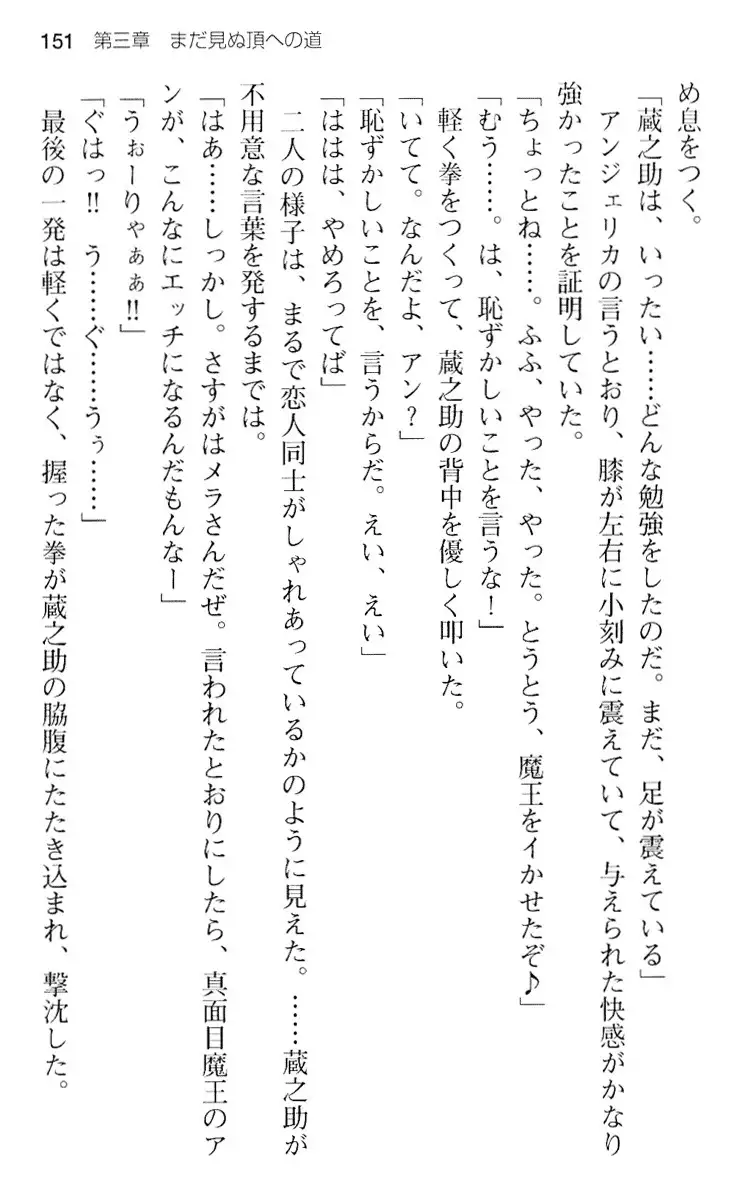 151 第三章 まだ見ぬ頂への道
め息をつく。
「蔵之助は、いったい……どんな勉強をしたのだ。まだ、足が震えている」
アンジェリカの言うとおり、膝が左右に小刻みに震えていて、与えられた快感がかなり
強かったことを証明していた。
「ちょっとね……。ふふ、やった、やった。とうとう、魔王をイかせたぞ♪」
「むう……。は、恥ずかしいことを言うな！」
軽く拳をつくって、蔵之助の背中を優しく叩いた。
「いてて。なんだよ、アン？」
「恥ずかしいことを、言うからだ。えい、えい」
「ははは、やめろってば」
二人の様子は、まるで恋人同士がしゃれあっているかのように見えた。……蔵之助が
不用意な言葉を発するまでは。
「はぁ……しっかし。さすがはメラさんだぜ。言われたとおりにしたら、真面目魔王のア
ンが、こんなにエッチになるんだもんなー」
「うぉーりゃぁぁ!!」
「ぐはっ!! う……ぐ……うぅ……」
最後の一発は軽くではなく、握った拳が蔵之助の脇腹にたたき込まれ、撃沈した。